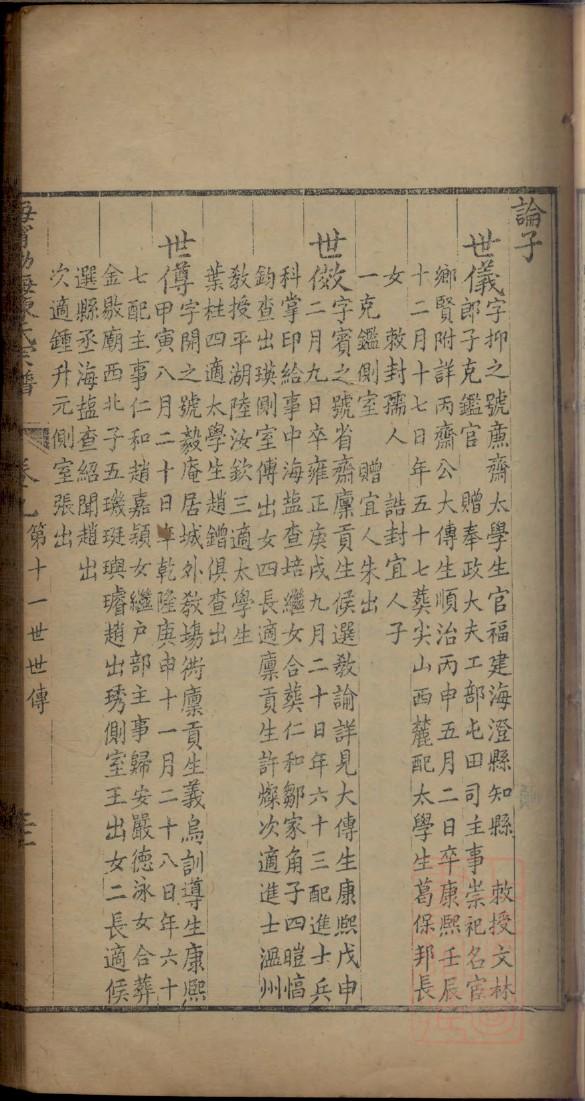 論子
世儀字抑之號亷齋太學生官福建海澄縣知縣 敕授文林
郎子克鑑官 贈奉政大夫工部屯田司主事崇祀名宦
鄉賢附詳丙齋公大傳生順治丙申五月二日卒康熙壬辰
十二月十七日年五十七葬尖山西麓配太學生葛保邦長
女 敕封孺人 誥封宜人子
一克鑑側室 贈宜人朱出
世傚字賓之號省齋廪貢生候選教諭詳見大傳生康熙戊申
二月九日卒雍正庚戌九月二十日年六十三配進士兵
科掌印給事中海鹽查培繼女合葬仁和鄒家角子四暟愭
鈞查出瑛側室傳出女四長適廪貢生許燦次適進士溫州
教授平湖陸汝欽三適太學生
葉柱四適太學生趙鏳俱查出
世僔字開之號毅庵居城外教場衖廪貢生義烏訓導生康熙
甲寅八月二十日卒乾隆庚申十一月二十八日年六十
七配主事仁和趙嘉穎女繼戶部主事歸安嚴德泳女合葬
金㪇廟西北子五璣珽璵璿趙出琇側室王出女二長適候
選縣丞海鹽查紹聞趙出
次適鍾升元側室張出
海寧渤海陳氏宗譜 卷九 第十一世世傳